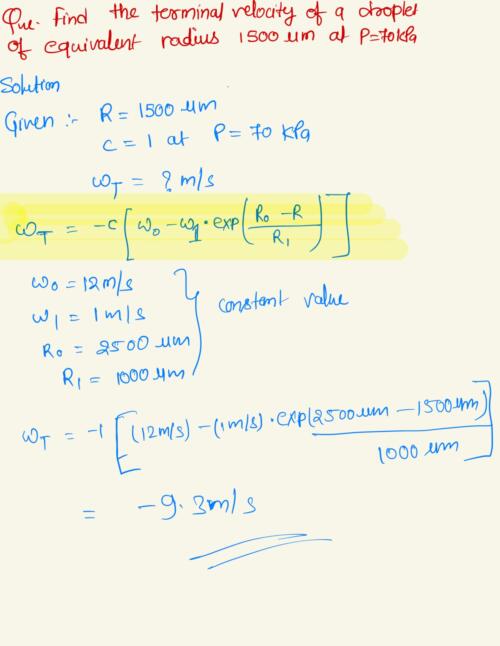 Que. Find the terminal velocity of a droplet
of equivalent radius 1500 um at P=70 kPa
Solution
Given :- R = 1500 um
c = 1 at P = 70 kPa
ω_T = ? m/s
ω_T = -c [ω_0 - ω_1 · exp((R_0 - R)/R_1)]
ω_0 = 12 m/s
ω_1 = 1 m/s
R_0 = 2500 um
R_1 = 1000 um
} constant value
ω_T = -1 [(12 m/s) - (1 m/s) · exp(2500 um - 1500 um)/1000 um]
= -9.3 m/s